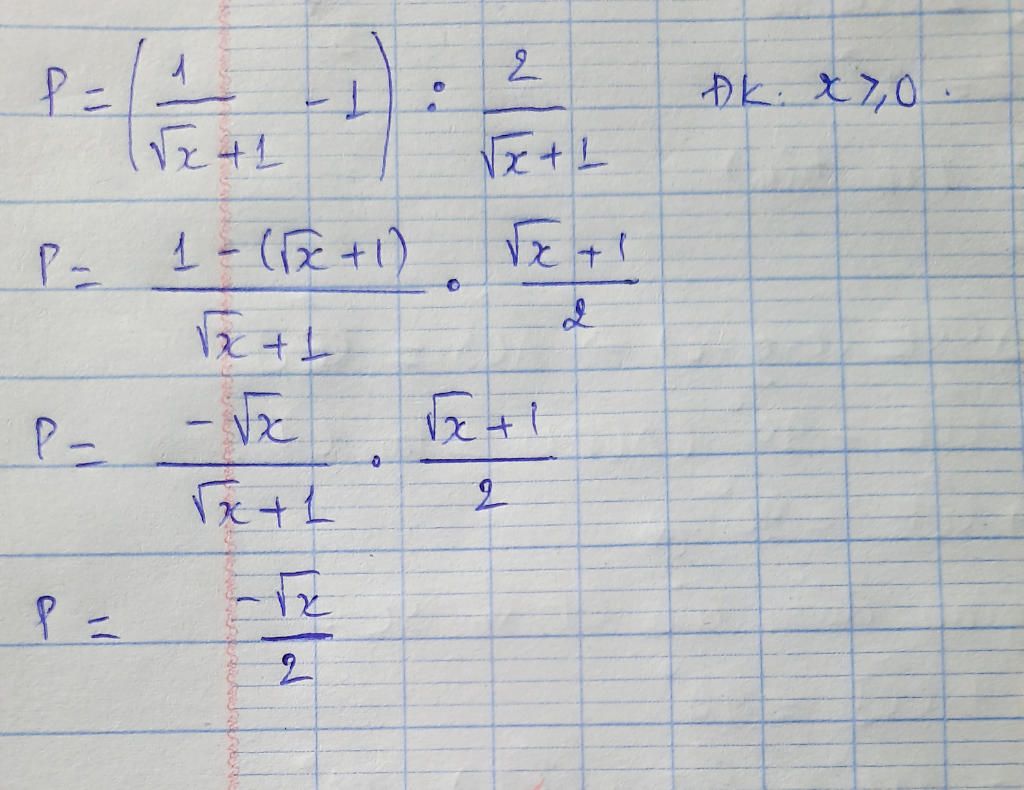 P = (1/(√x + 1) - 1) : 2/(√x + 1) ĐK: x ≥ 0.
P = (1 - (√x + 1))/(√x + 1) . (√x + 1)/2
P = (-√x)/(√x + 1) . (√x + 1)/2
P = -√x/2